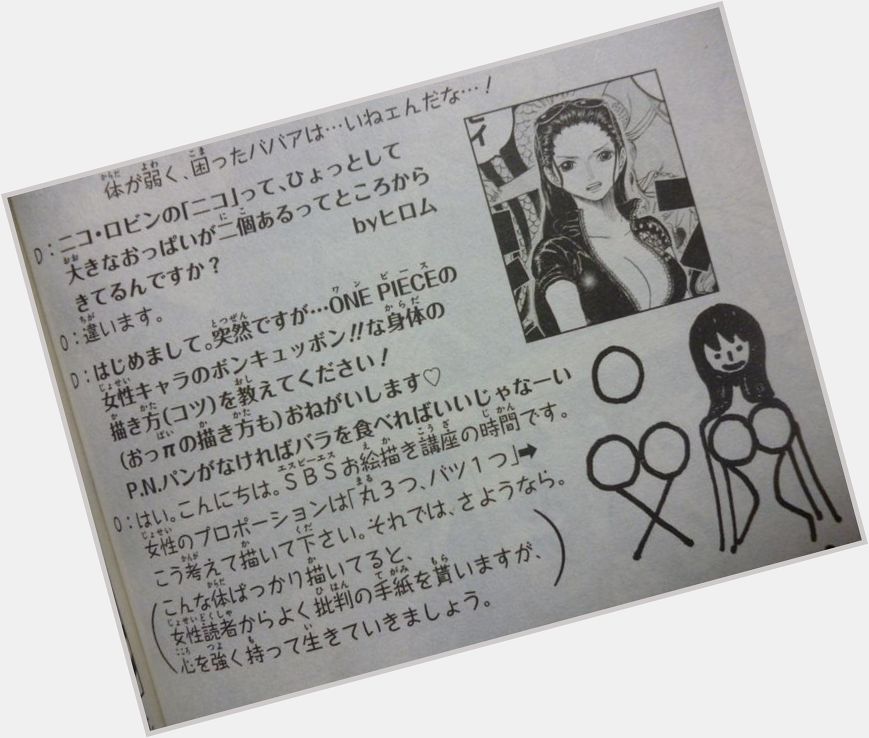 体が弱く、困ったババアは…いねェんだな…!
D:ニコ・ロビンの「ニコ」って、ひょっとして
大きなおっぱいが二個あるってところから
きてるんですか? byヒロム
O:違います。
D:はじめまして。突然ですが…ONE PIECEの
女性キャラのボンキュッボン!!な身体の
描き方(コツ)を教えてください!
(おっπの描き方も)おねがいします♡
P.N.パンがなければバラを食べればいいじゃなーい
O:はい。こんにちは。SBSお絵描き講座の時間です。
女性のプロポーションは「丸3つ、バツ1つ」➡
こう考えて描いて下さい。それでは、さようなら。
(こんな体ばっかり描いてると、
女性読者からよく批判の手紙を貰いますが、
心を強く持って生きていきましょう。)